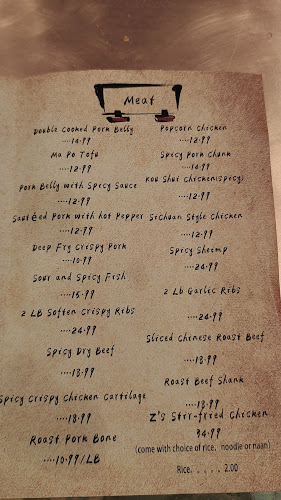 Meat
Double Cooked Pork Belly
....14.99
Ma Po Tofu
....12.99
Pork Belly with Spicy Sauce
....12.99
Sautéed Pork with hot Pepper
....12.99
Deep Fry Crispy Pork
....10.99
Sour and Spicy Fish
....15.99
2 LB Soften Crispy Ribs
....24.99
Spicy Dry Beef
....18.99
Spicy Crispy Chicken Cartilage
....18.99
Roast Pork Bone
....10.99/LB
Popcorn Chicken
....12.99
Spicy Pork Chunk
....14.99
Kou Shui Chicken(spicy)
....12.99
Sichuan Style Chicken
....12.99
Spicy Shrimp
....24.99
2 Lb Garlic Ribs
....24.99
Sliced Chinese Roast Beef
....18.99
Roast Beef Shank
....18.99
Z's Stir-fried Chicken
34.99
(come with choice of rice, noodle or naan)
Rice. . . . . 2.00